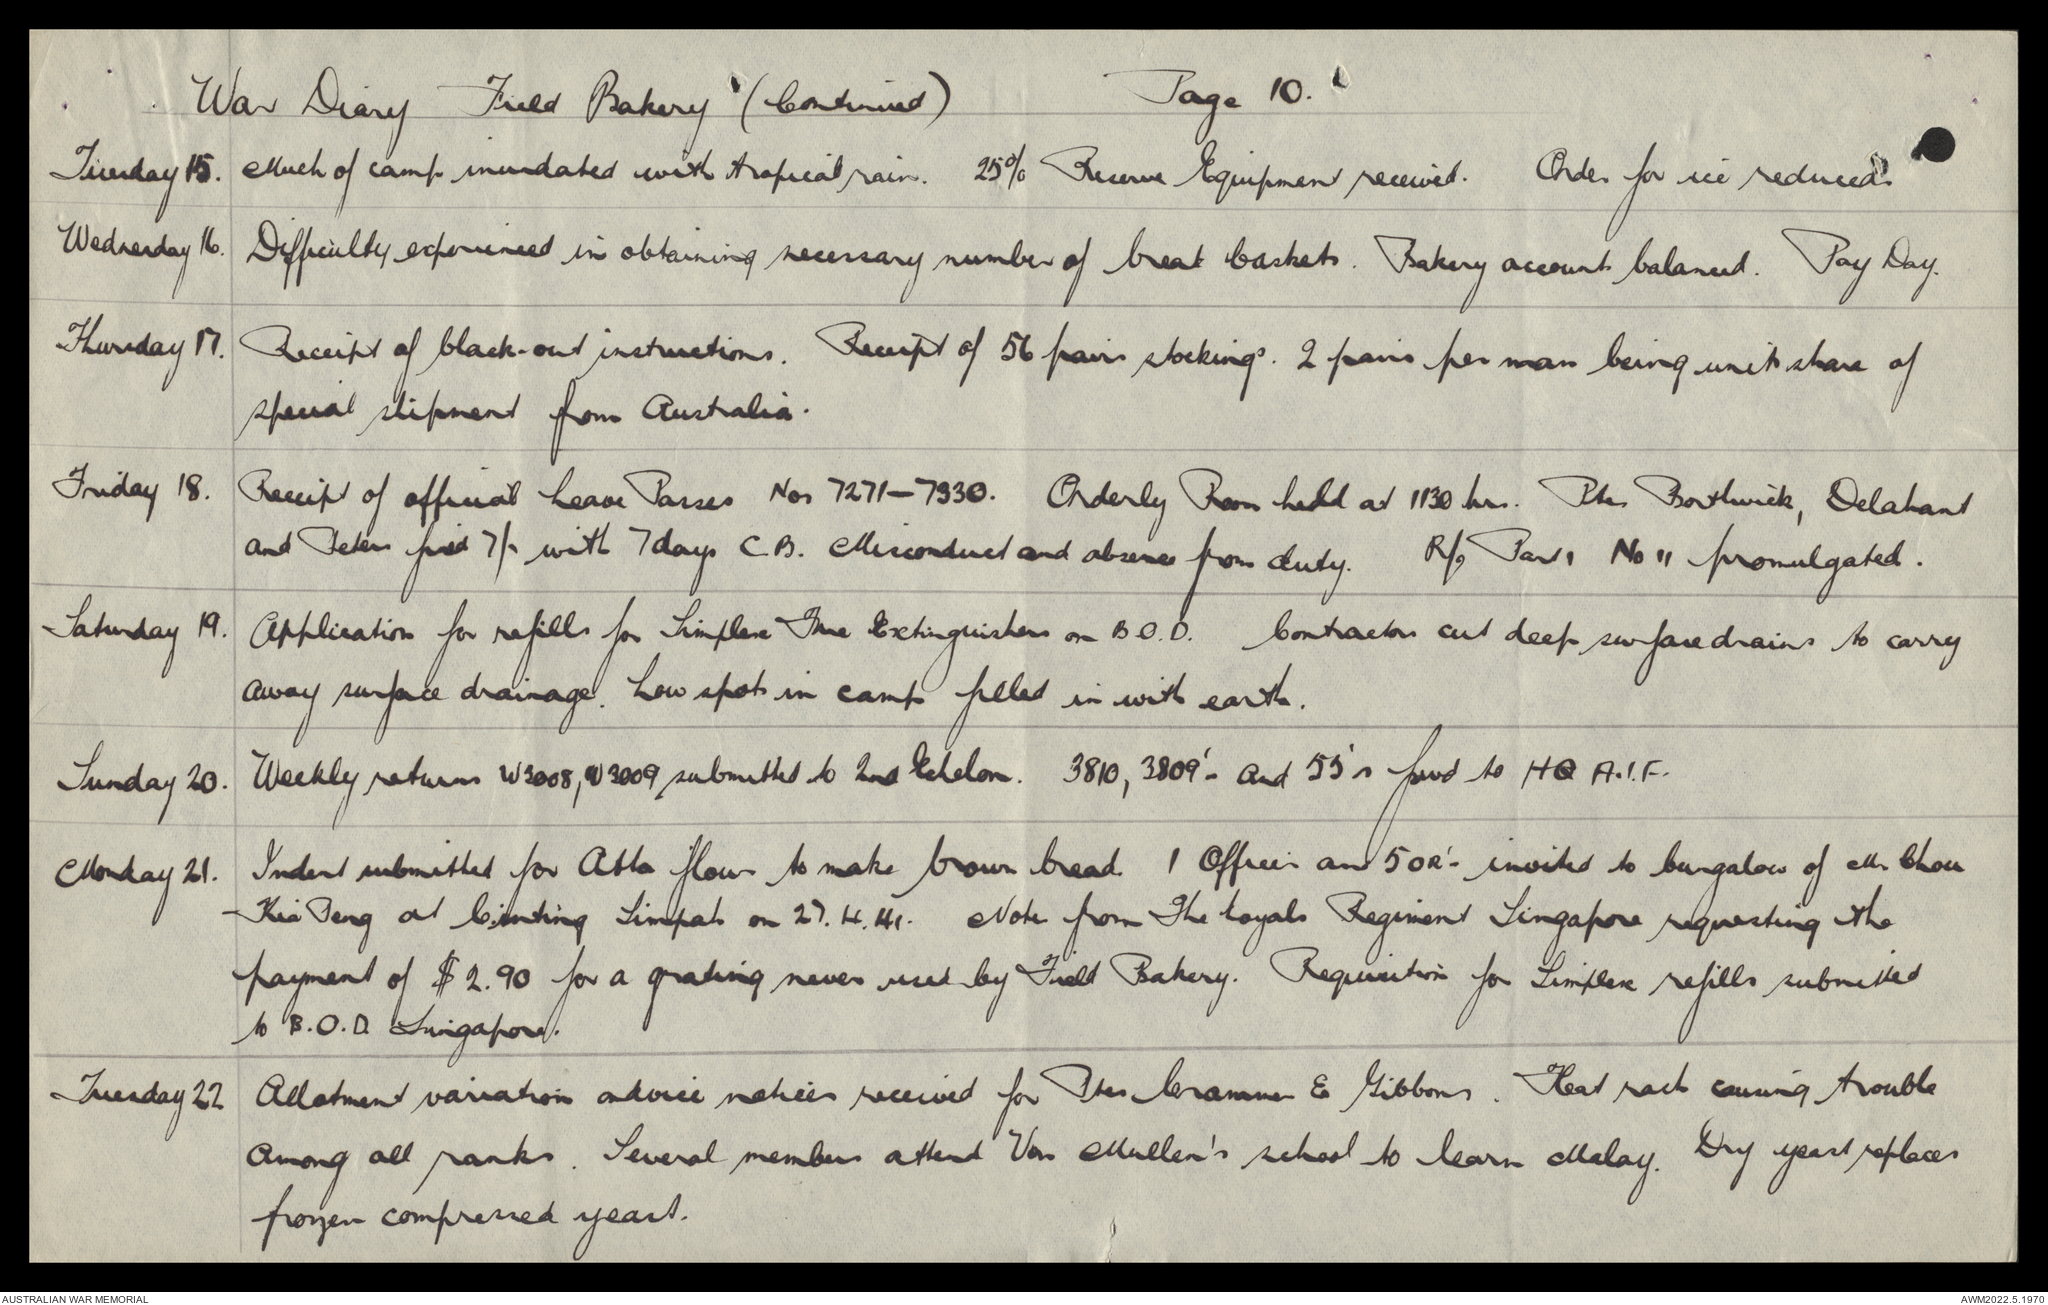 War Diary Field Bakery (Continued) Page 10.
Tuesday 15. Much of camp inundated with tropical rain. 25% Reserve Equipment received. Order for ice reduced.
Wednesday 16. Difficulty experienced in obtaining necessary number of bread baskets. Bakery account balanced. Pay Day.
Thursday 17. Receipt of black-out instructions. Receipt of 56 pairs stockings. 2 pairs per man being units share of
special shipment from Australia.
Friday 18. Receipt of official Leave Passes Nos 7271-7330. Orderly Room held at 1130 hrs. Ptes Borthwick, Delahant
and Peters fined 7/- with 7 days C.B. Misconduct and absence from duty. R/o Part 1 No 11 promulgated.
Saturday 19. Application for refills for Simplex Fire Extinguishers on B.O.D. Contractors cut deep surface drains to carry
away surface drainage. Low spots in camp filled in with earth.
Sunday 20. Weekly returns W3008, W3009 submitted to 2nd Echelon. 3810, 3809's and 55's fwd to HQ A.I.F.
Monday 21. Indent submitted for Atta flour to make brown bread. 1 Officer and 5 OR's invited to bungalow of Mr Chou
Kia Peng at Ginting Simpah on 27.4.41. Note from The Loyals Regiment Singapore requesting the
payment of $2.90 for a grating never used by Field Bakery. Requisition for Simplex refills submitted
to B.O.D. Singapore.
Tuesday 22 Allotment variation advice notices received for Ptes Crammer & Gibbons. Heat rash causing trouble
among all ranks. Several members attend Von Mullen's school to learn Malay. Dry yeast replaces
frozen compressed yeast.
AUSTRALIAN WAR MEMORIAL AWM2022.5.1970